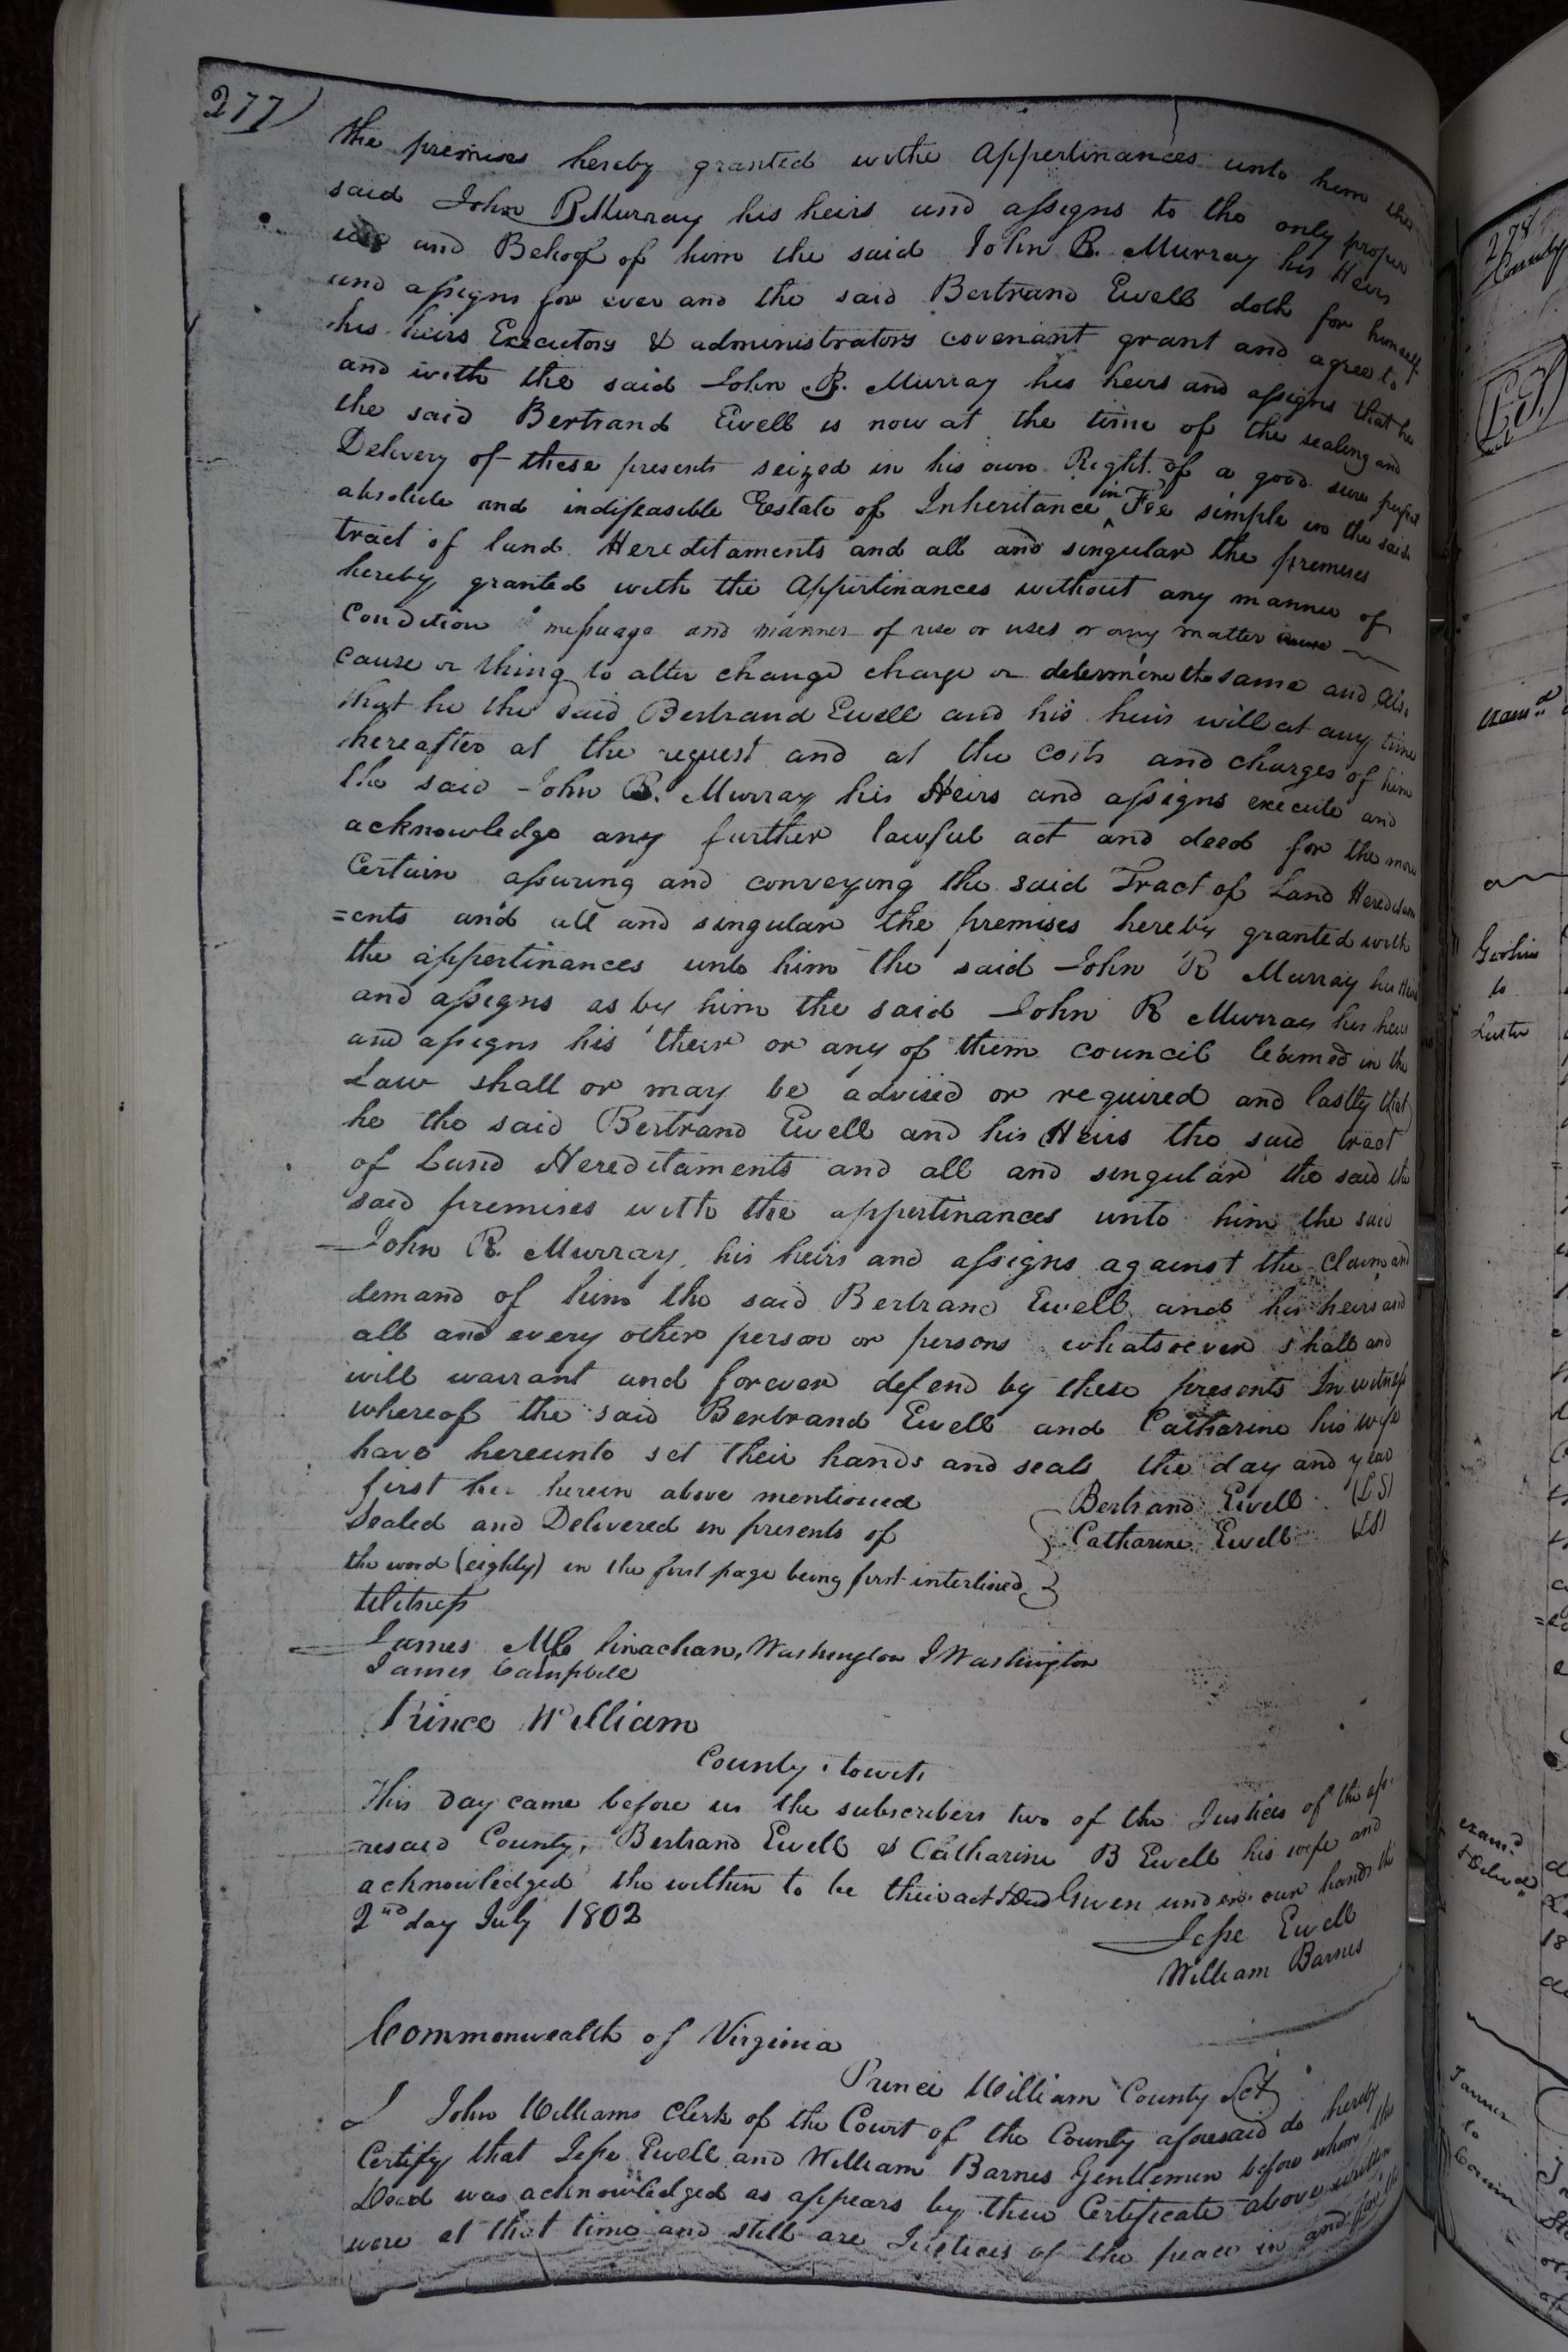 277)
the premises hereby granted withe Appertinances unto him the
said John R Murray his heirs and assigns to the only proper
use and Behoof of him the said John R. Murray his Heirs
and assigns for ever and the said Bertrand Ewell doth for himself
his heirs Executors & administrators covenant grant and agree to
and with the said John R. Murray his heirs and assigns that he
the said Bertrand Ewell is now at the time of the sealing and
Delivery of these presents seized in his own Right of a good sure perfect
absolute and indifeasible Eestate of Inheritance in Fee simple in the said
tract of land Hereditaments and all and singular the premeses
hereby granted with the Appertinances without any manner of
Condition messuage and manner of use or uses or any matter cause
cause or thing to alter change charge or determine the same and also
that he the said Bertrand Ewell and his heirs will at any time
hereafter at the request and at the costs and charges of him
the said John R. Murray his Heirs and assigns execute and
acknowledge any further lawful act and deed for the more
Certain assuring and conveying the said Tract of Land Hereditam
=ents and all and singular the premises hereby granted with
the appertinances unto him the said John R Murray his Heirs
and assigns as by him the said John R Murray his heirs
and assigns his their or any of them council learned in the
Law shall or may be advised or required and lastly that
he the said Bertrand Ewell and his Heirs the said tract
of Land Hereditaments and all and singular the said the
said premises with the appertinances unto him the said
John R. Murray his heirs and assigns against the Claim and
demand of him the said Bertrand Ewell and his heirs and
all and every other person or persons whatsoever shall and
will warrant and forever defend by these presents In witness
whereof the said Bertrand Ewell and Catharine his wife
have hereunto set their hands and seals the day and year
first her herein above mentioned Bertrand Ewell (LS)
Sealed and Delivered in presents of } Catharine Ewell (LS)
the word (eighty) in the first page being first interlined }
Witness
James Mc linachan, Washington J Washington
James Campbell
Prince William
County towit
This day came before us the subscribers two of the Justices of the afo
resaid County, Bertrand Ewell & Catharine B Ewell his wife and
acknowledged the within to be their act & Deed Given under our hands this
2nd day July 1802
Jesse Ewell
William Barnes
Commonwealth of Virginia
Prince William County Sct
I John Williams Clerk of the Court of the County aforesaid do hereby
Certify that Jesse Ewell and William Barnes Gentlemen before whom this
Deed was acknowledged as appears by their Certificate above written
were at that time and still are Justices of the peace in and for the
278
County
to
exam.d